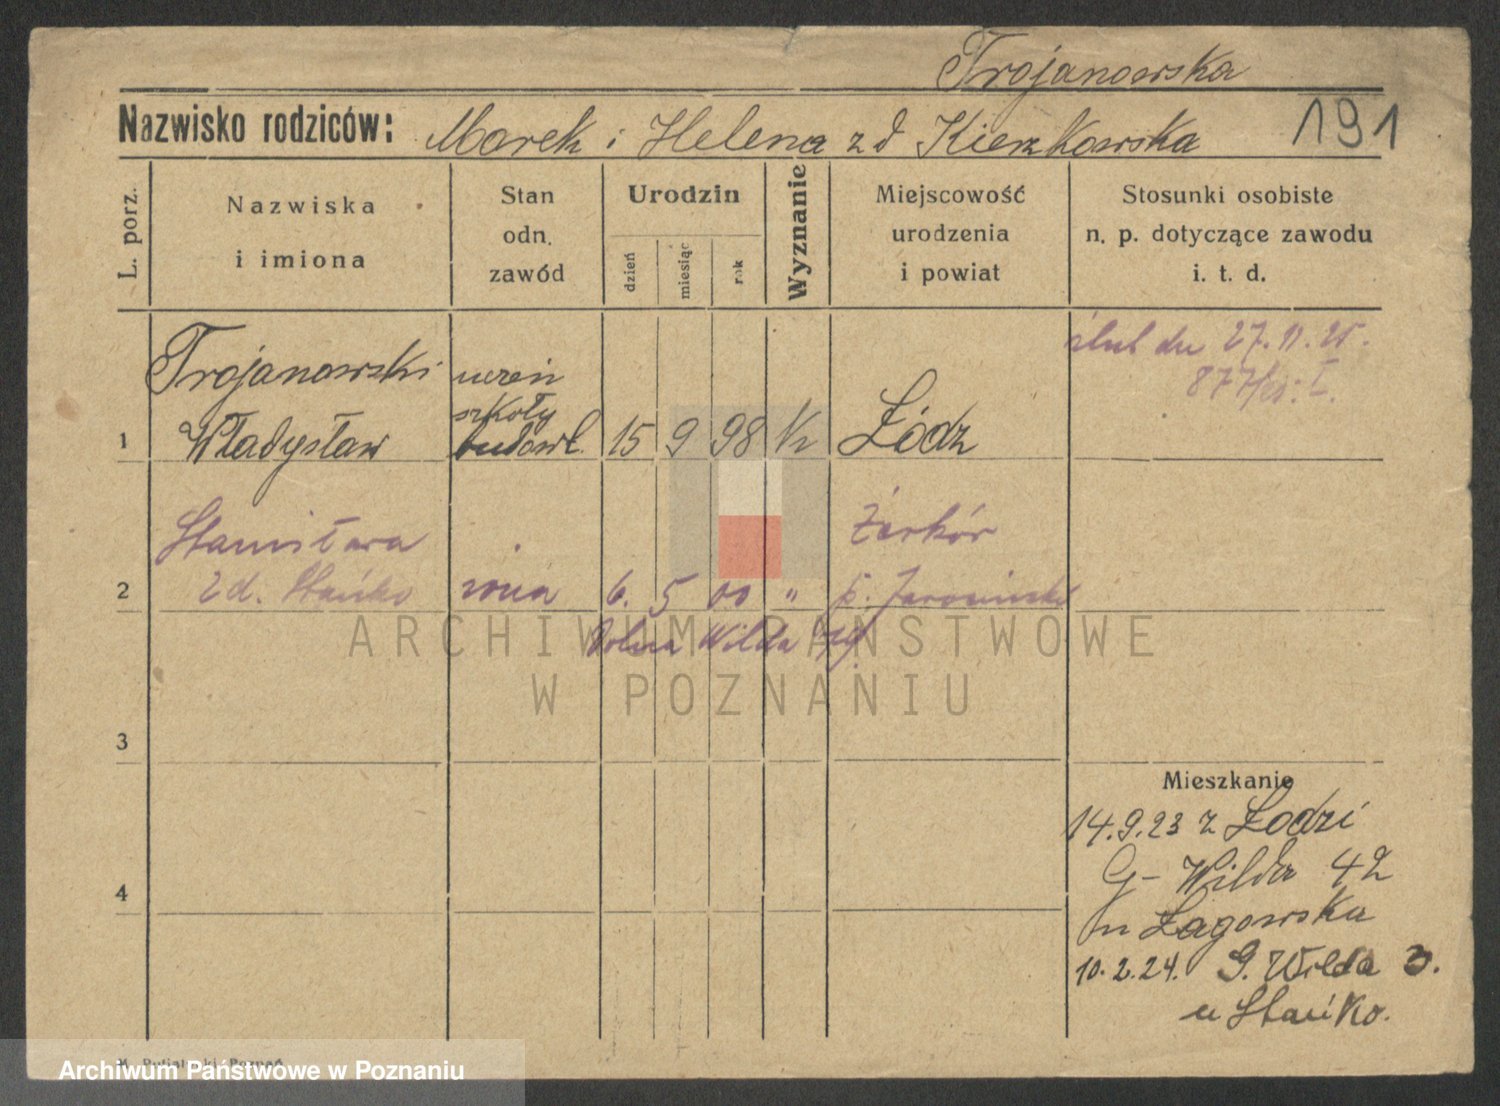 Trojanowska
Nazwisko rodziców: Marek i Helena zd Kierzkowska 191
L. porz.
Nazwiska
i imiona
Stan
odn.
zawód
Urodzin
dzień
miesiąc
rok
Wyznanie
Miejscowość
urodzenia
i powiat
Stosunki osobiste
n. p. dotyczące zawodu
i. t. d.
ślub dn 27.11.25.
Trojanowski uczeń
szkoły
1 Władysław budowl. 15 9 98 Łódz
Stanisława Żerków
2 zd. Stańko żona 6. 5 00 " p. Jarociński
Dolna Wilda
ARCHIWUM PAŃSTWOWE
W POZNANIU
3
Mieszkanie
14.9.23 z Łodzi
4 G- Wilda 42
Łagowska
10.2.24. G. Wilda 3.
u Stańko.
Poznań
Archiwum Państwowe w Poznaniu